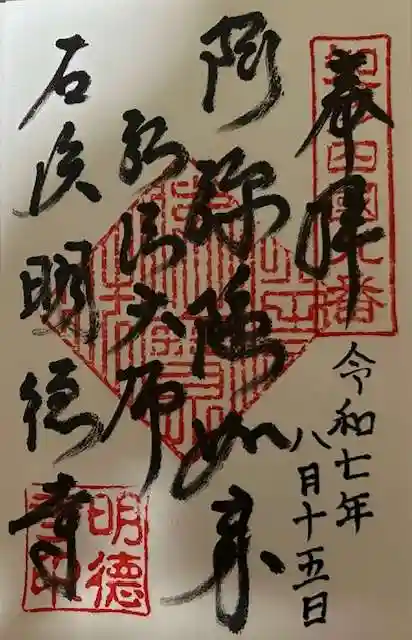 知多四國九番
奉拝
令和七年
八月十五日
阿弥陀如来
弘法大师
石浜明徳寺
明德
寺印